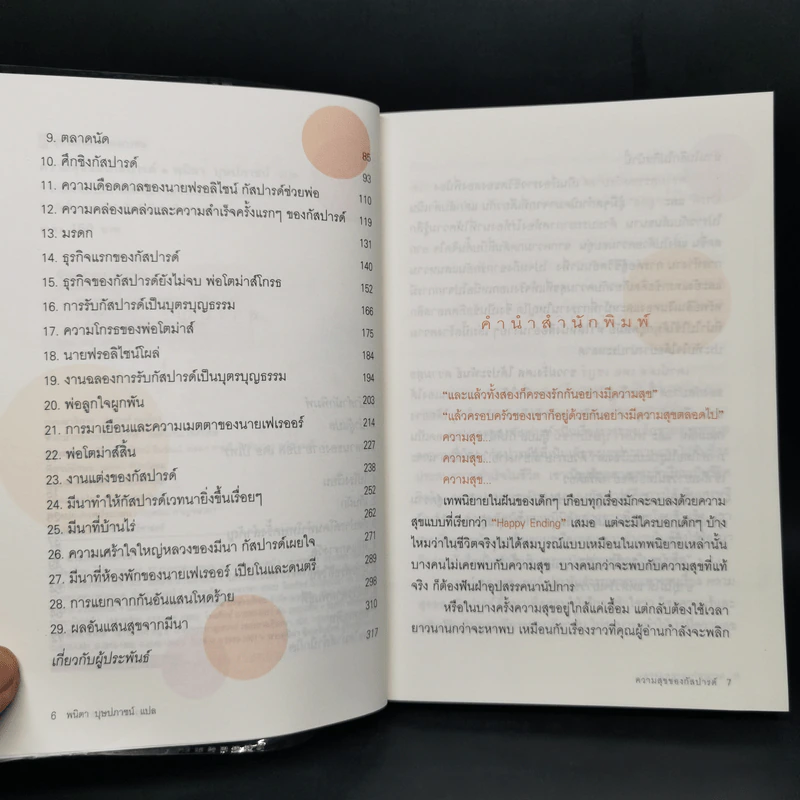 9. ตลาดนัด 85
10. ศึกชิงกัสปารด์ 93
11. ความเดือดดาลของนายฟรอลิไชน์ กัสปารด์ช่วยพ่อ 110
12. ความคล่องแคล่วและความสำเร็จครั้งแรกๆ ของกัสปารด์ 119
13. มรดก 131
14. ธุรกิจแรกของกัสปารด์ 140
15. ธุรกิจของกัสปารด์ยังไม่จบ พ่อโตม่าส์โกรธ 152
16. การรับกัสปารด์เป็นบุตรบุญธรรม 166
17. ความโกรธของพ่อโตม่าส์ 175
18. นายฟรอลิไชน์โผล่ 184
19. งานฉลองการรับกัสปารด์เป็นบุตรบุญธรรม 194
20. พ่อลูกใจผูกพัน 203
21. การมาเยือนและความเมตตาของนายเฟเรออร์ 214
22. พ่อโตม่าส์สิ้น 227
23. งานแต่งของกัสปารด์ 238
24. มีนาทำให้กัสปารด์เวทนายิ่งขึ้นเรื่อยๆ 252
25. มีนาที่บ้านไร่ 262
26. ความเศร้าใจใหญ่หลวงของมีนา กัสปารด์เผยใจ 271
27. มีนาที่ห้องพักของนายเฟเรออร์ เปียโนและดนตรี 289
28. การแยกจากกันอันแสนโหดร้าย 298
29. ผลอันแสนสุขจากมีนา 310
เกี่ยวกับผู้ประพันธ์ 317
6 พนิดา บุษปภาชน์ แปล
คำนำสำนักพิมพ์
“และแล้วทั้งสองก็ครองรักกันอย่างมีความสุข”
“แล้วครอบครัวของเขาก็อยู่ด้วยกันอย่างมีความสุขตลอดไป”
ความสุข...
ความสุข...
ความสุข...
เทพนิยายในฝันของเด็กๆ เกือบทุกเรื่องมักจะจบลงด้วยความ
สุขแบบที่เรียกว่า “Happy Ending” เสมอ แต่จะมีใครบอกเด็กๆ บ้าง
ไหมว่าในชีวิตจริงไม่ได้สมบูรณ์แบบเหมือนในเทพนิยายเหล่านั้น
บางคนไม่เคยพบกับความสุข บางคนกว่าจะพบกับความสุขที่แท้
จริง ก็ต้องฟันฝ่าอุปสรรคนานัปการ
หรือในบางครั้งความสุขอยู่ใกล้แค่เอื้อม แต่กลับต้องใช้เวลา
ยาวนานกว่าจะหาพบ เหมือนกับเรื่องราวที่คุณผู้อ่านกำลังจะพลิก
ความสุขของกัสปารด์ 7